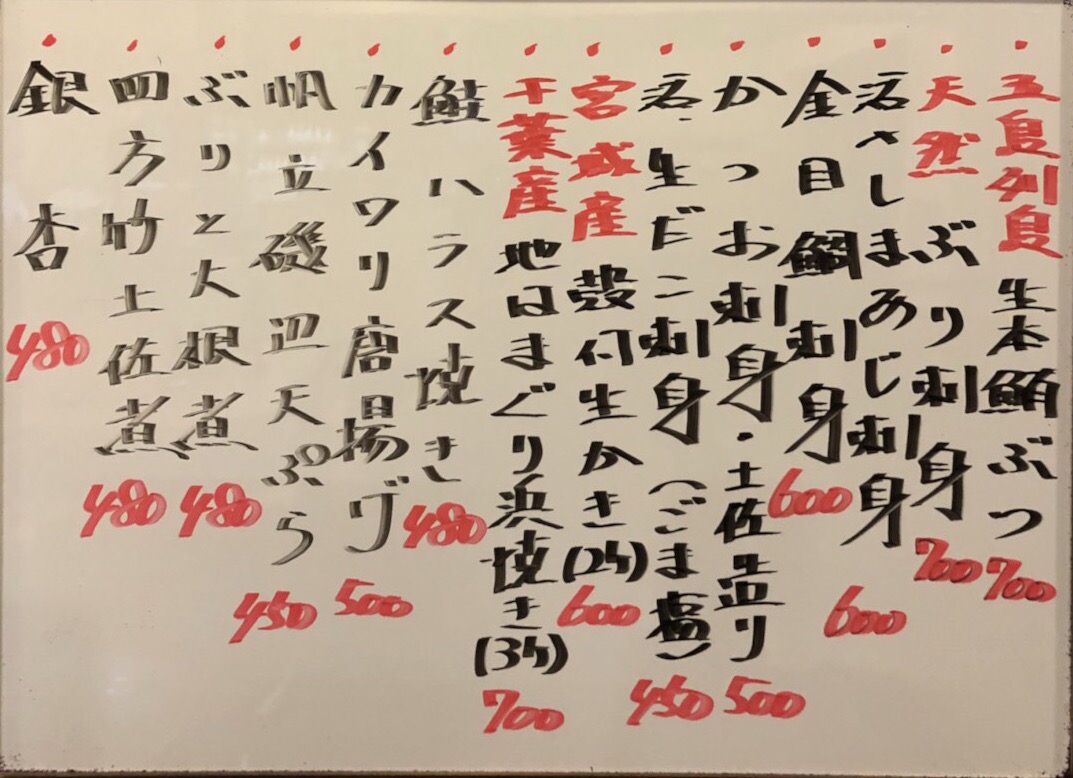 五島列島 生本鮪ぶつ 700
天然 ぶり刺身 700
活さしまあじ刺身 600
金目鯛刺身 600
かっお刺身・土佐造り 500
活・生だこ刺身(ごま塩) 450
宮城産 殻付生かき(2ケ) 600
千葉産 地はまぐり浜焼き(3ケ) 700
鮭ハラス焼き 480
カイワリ唐揚げ 500
帆立磯辺天ぷら 450
ぶりと大根煮 480
四方竹土佐煮 480
銀杏 480